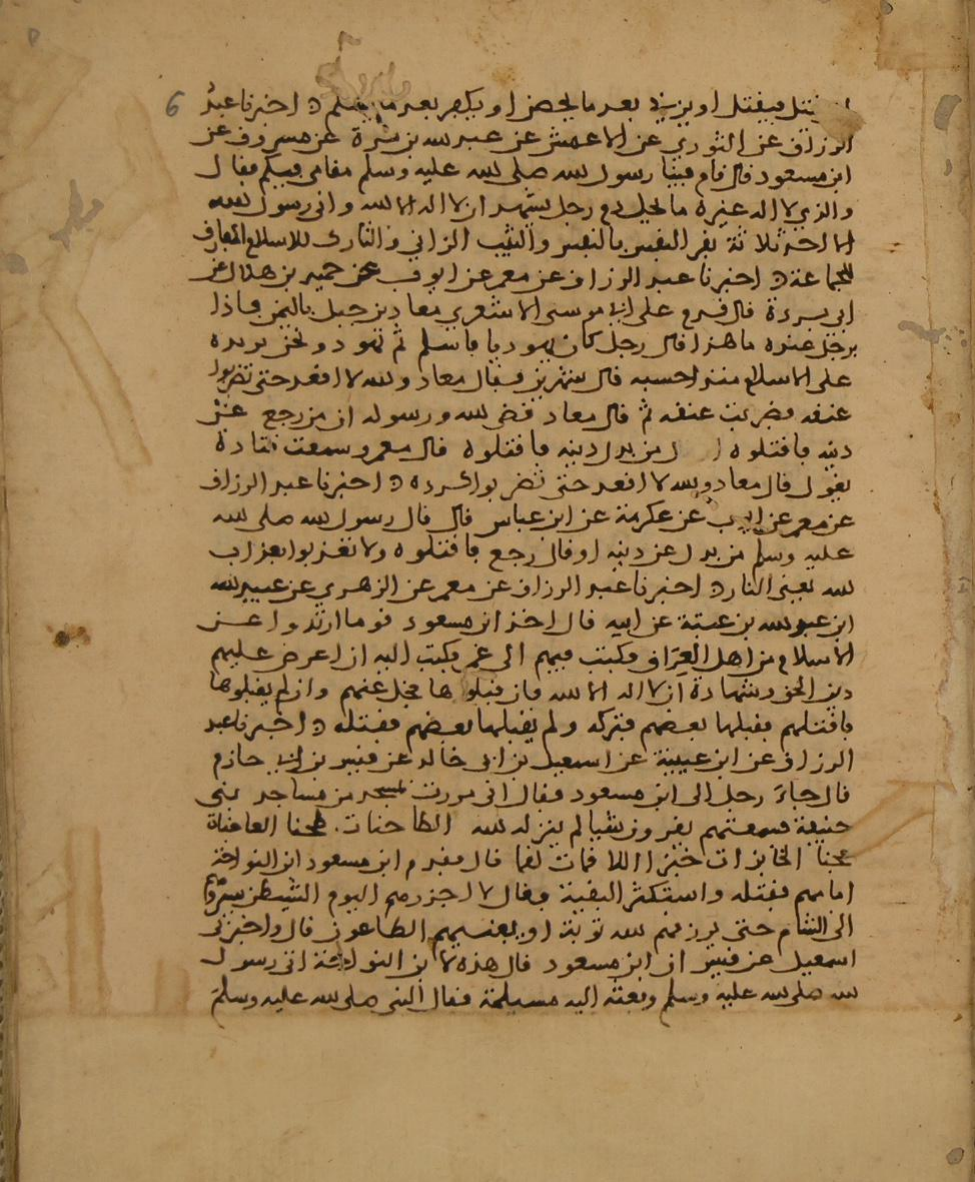 يقتل فيقتل او يزني بعد ما يحصن او يكفر بعد ما يسلم ه اخبرنا عبد 6
الرزاق عن الثوري عن الاعمش عن عبد الله بن مرة عن مسروق عن
ابن مسعود قال قام فينا رسول الله صلى الله عليه وسلم مقامي فيكم فقال
والذي لا اله غيره ما يحل دم رجل يشهد ان لا اله الا الله واني رسول الله
الا احد ثلاثة نفر النفس بالنفس والثيب الزاني والتارك للاسلام المفارق
للجماعة ه اخبرنا عبد الرزاق عن معمر عن ايوب عن حميد بن هلال عن
ابي بردة قال قدم على ابي موسى الاشعري معاذ بن جبل باليمن فاذا
برجل عنده ما هذا قال رجل كان يهوديا فاسلم ثم تهود ونحن نريده
على الاسلام منذ احسبه قال شهرين فقال معاذ والله لا اقعد حتى تضربوا
عنقه فضربت عنقه ثم قال معاذ قضى الله ورسوله ان من رجع عن
دينه فاقتلوه من بدل دينه فاقتلوه قال معمر وسمعت قتادة
يقول قال معاذ والله لا اقعد حتى تضربوا كرده ه اخبرنا عبد الرزاق
عن معمر عن ايوب عن عكرمة عن ابن عباس قال قال رسول الله صلى الله
عليه وسلم من بدل عن دينه او قال رجع فاقتلوه ولا تعذبوا بعذاب
الله يعني النار ه اخبرنا عبد الرزاق عن معمر عن الزهري عن عبيد الله
ابن عبد الله بن عتبة عن ابيه قال اخذ ابن مسعود قوما ارتدوا عن
الاسلام من اهل العراق فكتب فيهم الى عمر فكتب اليه ان اعرض عليهم
دين الحق وشهادة ان لا اله الا الله فان قبلوها فخل عنهم وان لم يقبلوها
فاقتلهم فقبلها بعضهم فتركه ولم يقبلها بعضهم فقتله ه اخبرنا عبد
الرزاق عن ابن عيينة عن اسمعيل بن ابي خالد عن قيس بن ابي حازم
قال جاء رجل الى ابن مسعود فقال اني مررت بمسجد من مساجد بني
حنيفة فسمعتهم يقرون شيا لم ينزله الله الطاحنات طحنا العاجنات
عجنا الخابزات خبزا اللاقمات لقما قال فقدم ابن مسعود ابن النواحة
امامهم فقتله واستكثر البقية فقال لا اجزرهم اليوم الشيطن سيروهم
الى الشام حتى يرزقهم الله توبة او يفنيهم الطاعون قال واخبرني
اسمعيل عن قيس ان ابن مسعود قال هذه لابن النواحة اتى رسول
الله صلى الله عليه وسلم وبعثه اليه مسيلمة فقال النبي صلى الله عليه وسلم